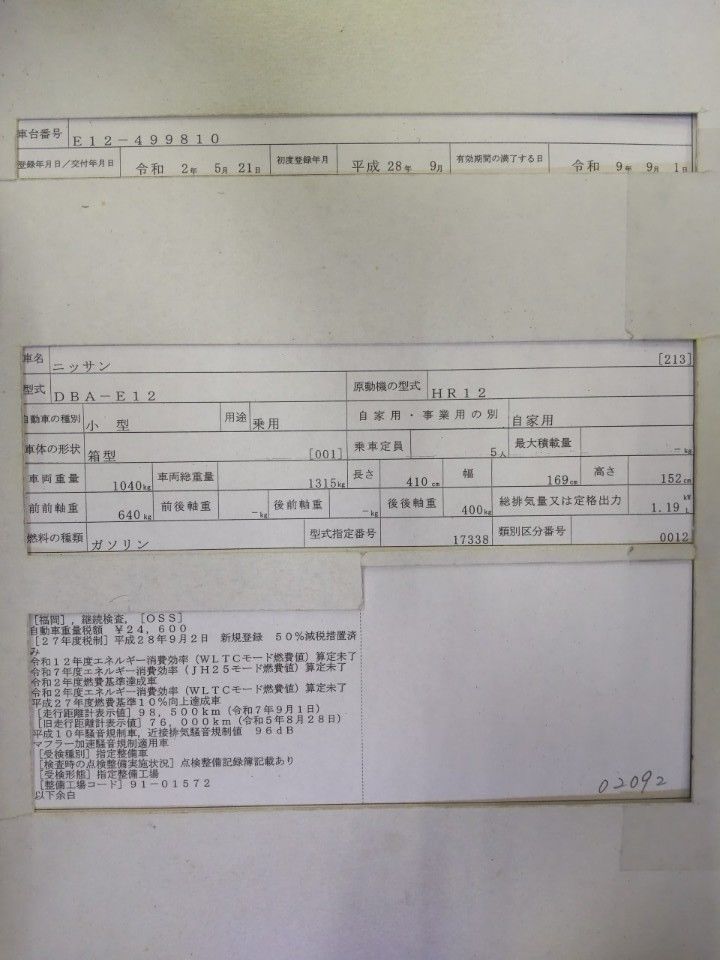 車台番号 E12-499810
登録年月日/交付年月日 令和 2年 5月 21日 初度登録年月 平成 28年 9月 有効期間の満了する日 令和 9年 9月 1日
車名 ニッサン [213]
型式 DBA-E12 原動機の型式 HR12
自動車の種別 小 型 用途 乗用 自家用・事業用の別 自家用
車体の形状 箱型 [001] 乗車定員 5人 最大積載量 -kg
車両重量 1040kg 車両総重量 1315kg 長さ 410cm 幅 169cm 高さ 152cm
前前軸重 640kg 前後軸重 -kg 後前軸重 -kg 後後軸重 400kg 総排気量又は定格出力 1.19 kW L
燃料の種類 ガソリン 型式指定番号 17338 類別区分番号 0012
[福岡],継続検査,[OSS]
自動車重量税額 ¥24,600
[27年度税制]平成28年9月2日 新規登録 50%減税措置済
み
令和12年度エネルギー消費効率(WLTCモード燃費値)算定未了
令和7年度エネルギー消費効率(JH25モード燃費値)算定未了
令和2年度燃費基準達成車
令和2年度エネルギー消費効率(WLTCモード燃費値)算定未了
平成27年度燃費基準10%向上達成車
[走行距離計表示値]98,500km(令和7年9月1日)
[旧走行距離計表示値]76,000km(令和5年8月28日)
平成10年騒音規制車,近接排気騒音規制値 96dB
マフラー加速騒音規制適用車
[受検種別]指定整備車
[検査時の点検整備実施状況]点検整備記録簿記載あり
[受検形態]指定整備工場
[整備工場コード]91-01572
以下余白
02092